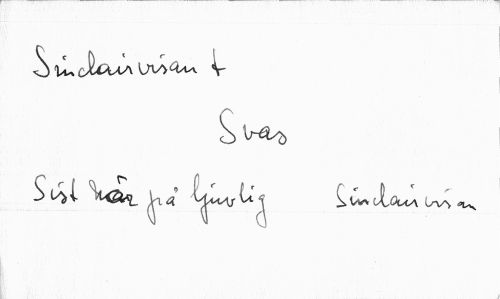 Sinclairvisan t
Svar
Sist när på ljuvlig Sinclairvisan